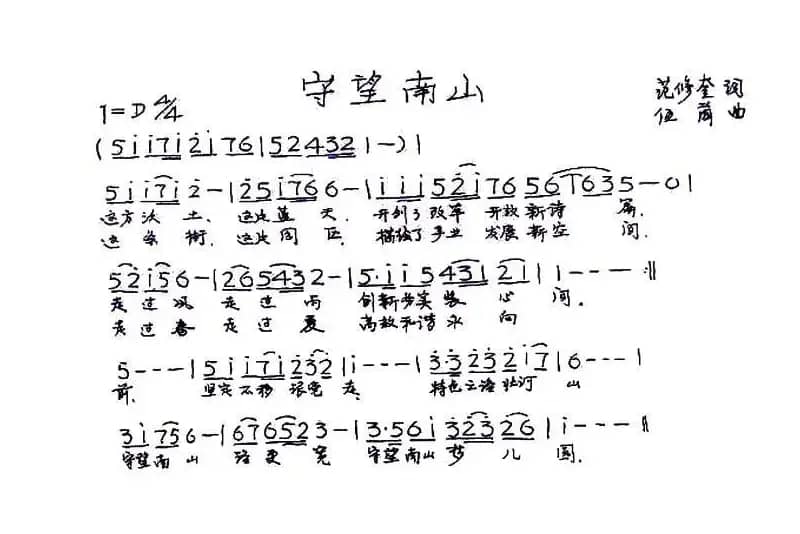 守望南山
范修奎 词
1=D 4/4
伍 曲
(5 i i 7 i 2 i 7 6 | 5 2 4 3 2 1 — ) |
5 i i 7 i 2 — | 2 5 i 7 6 6 — | i i i 5 2 i 7 6 5 6 i 7 6 3 5 — 0 |
这方沃 土、 这片蓝 天、 开创了改革 开放新诗 篇、
这条街、 这片园区、 描绘了事业 发展新空 间、
5 2 i 5 6 — | 2 6 5 4 3 2 — | 5 · i i 5 4 3 1 2 1 | 1 — — — :||
走过风 走过雨 创新务实 心 间。
走过春 走过夏 高效和谐永 向
5 — — — | 5 i i 7 i 2 3 2 | i — — — | 3 · 3 2 3 2 i 7 | 6 — — — |
前。 坚定不移 走、 特色之路壮河 山
3 i 7 5 6 — | 6 7 6 5 2 3 — | 3 · 5 6 i 3 2 3 2 6 | i — — — ||
守望南山 更 宽 守望南山梦 儿 圆。